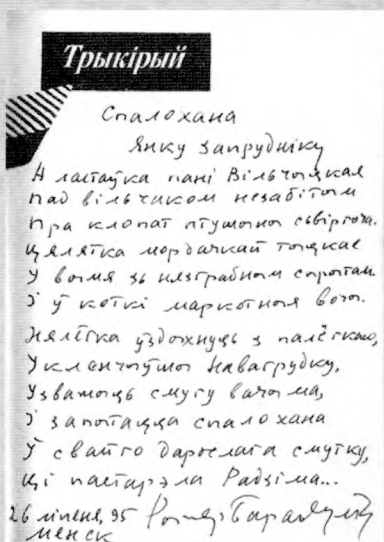 Трыкірый
Спалохана
Янку Запрудніку
А ластаўка пані Вільчыцкая
Над вільчаком незабітым
Пра клопат птушыны сьвіргоча.
Цялятка мордачкай тыцкае
У вымя зь нязграбным спрытам.
І ў коткі маркотныя вочы.
Нялёгка ўздыхнуць з палёгкаю,
Укленчыўшы Навагрудку,
Узважыць смугу вачыма,
І запытацца спалохана
Ў свайго дарослага смутку,
Ці пастарэла Радзіма...
26 ліпеня, 95
Менск